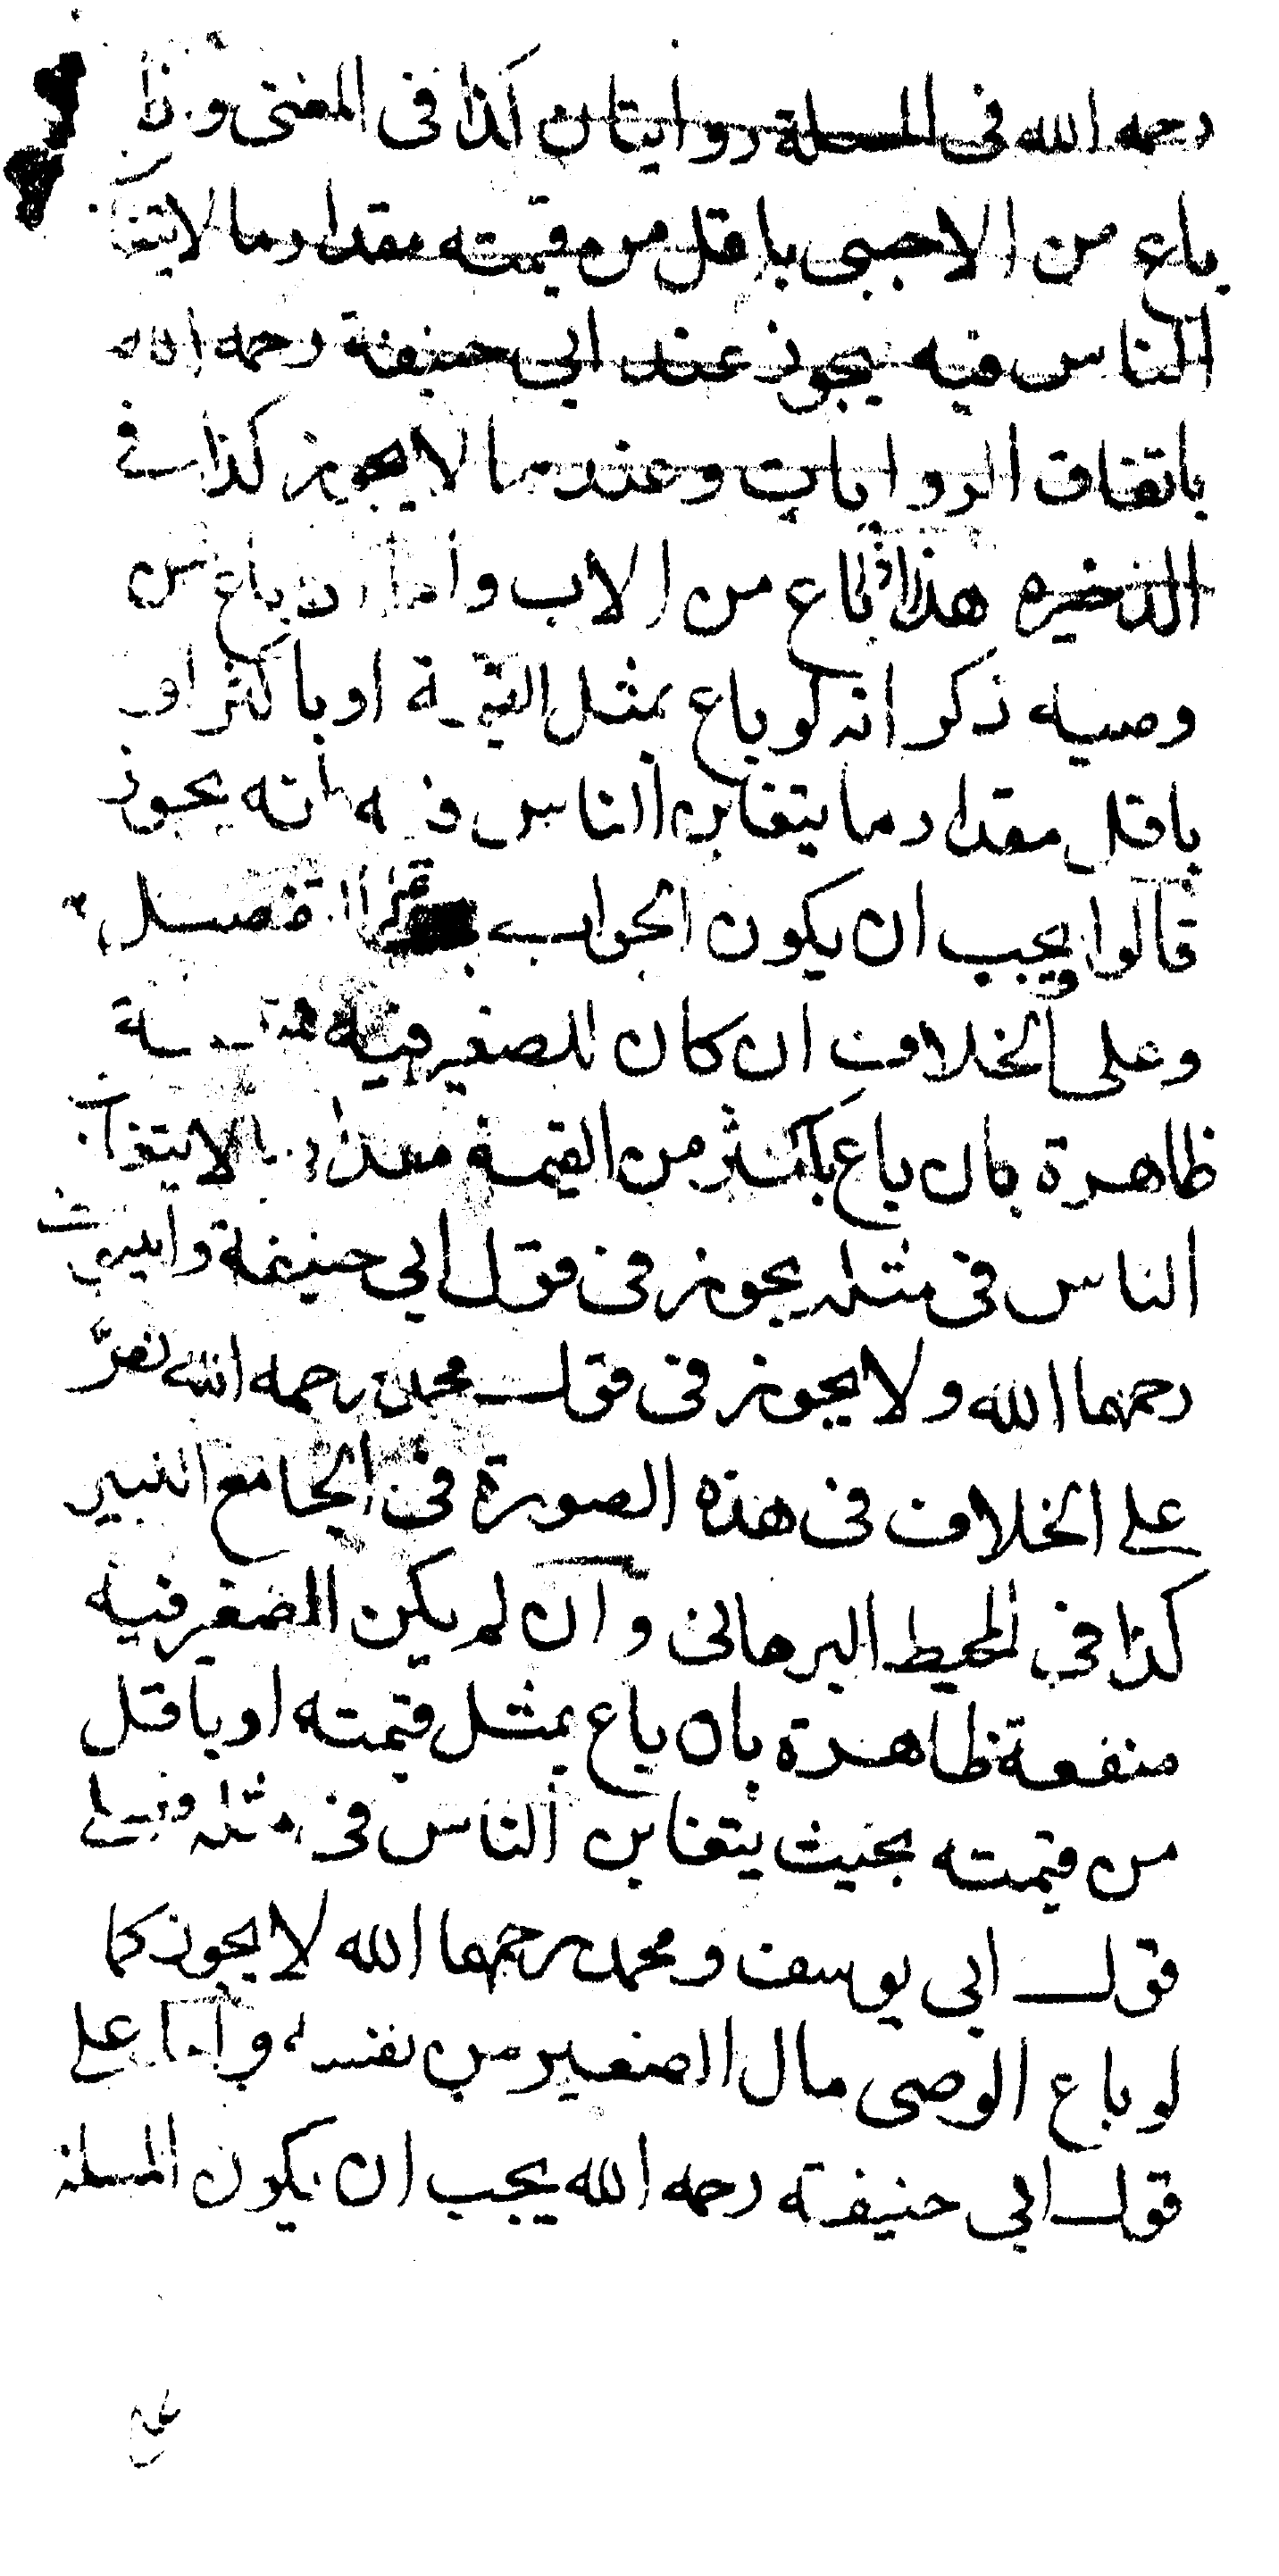 رحمه الله فى المسلة روايتان كذا فى المغنى و
باع من الاجنبى باقل من قيمته مقدار ما لا يتغابن
الناس فيه يجوز عند ابى حنيفة رحمه الله
باتفاق الروايات وعندهما لا يجوز كذا فى
الذخيره هذا اذا باع من الاب واما اذا باع من
وصيه ذكر انه لو باع بمثل القيمة او باكثر او
باقل مقدار ما يتغابن الناس فيه انه يجوز
قالوا ويجب ان يكون الجواب على التفصيل
وعلى الخلاف ان كان للصغير فيه منفعة
ظاهرة بان باع باكثر من القيمة مقدار ما لا يتغابن
الناس فى مثله يجوز فى قول ابى حنيفة وابى يوسف
رحمهما الله ولا يجوز فى قول محمد رحمه الله نص
على الخلاف فى هذه الصورة فى الجامع الكبير
كذا فى المحيط البرهانى وان لم يكن للصغير فيه
منفعة ظاهرة بان باع بمثل قيمته او باقل
من قيمته بحيث يتغابن الناس فى مثله فعلى
قول ابى يوسف ومحمد رحمهما الله لا يجوز كما
لو باع الوصى مال الصغير من نفسه واما على
قول ابى حنيفة رحمه الله يجب ان يكون المسلة